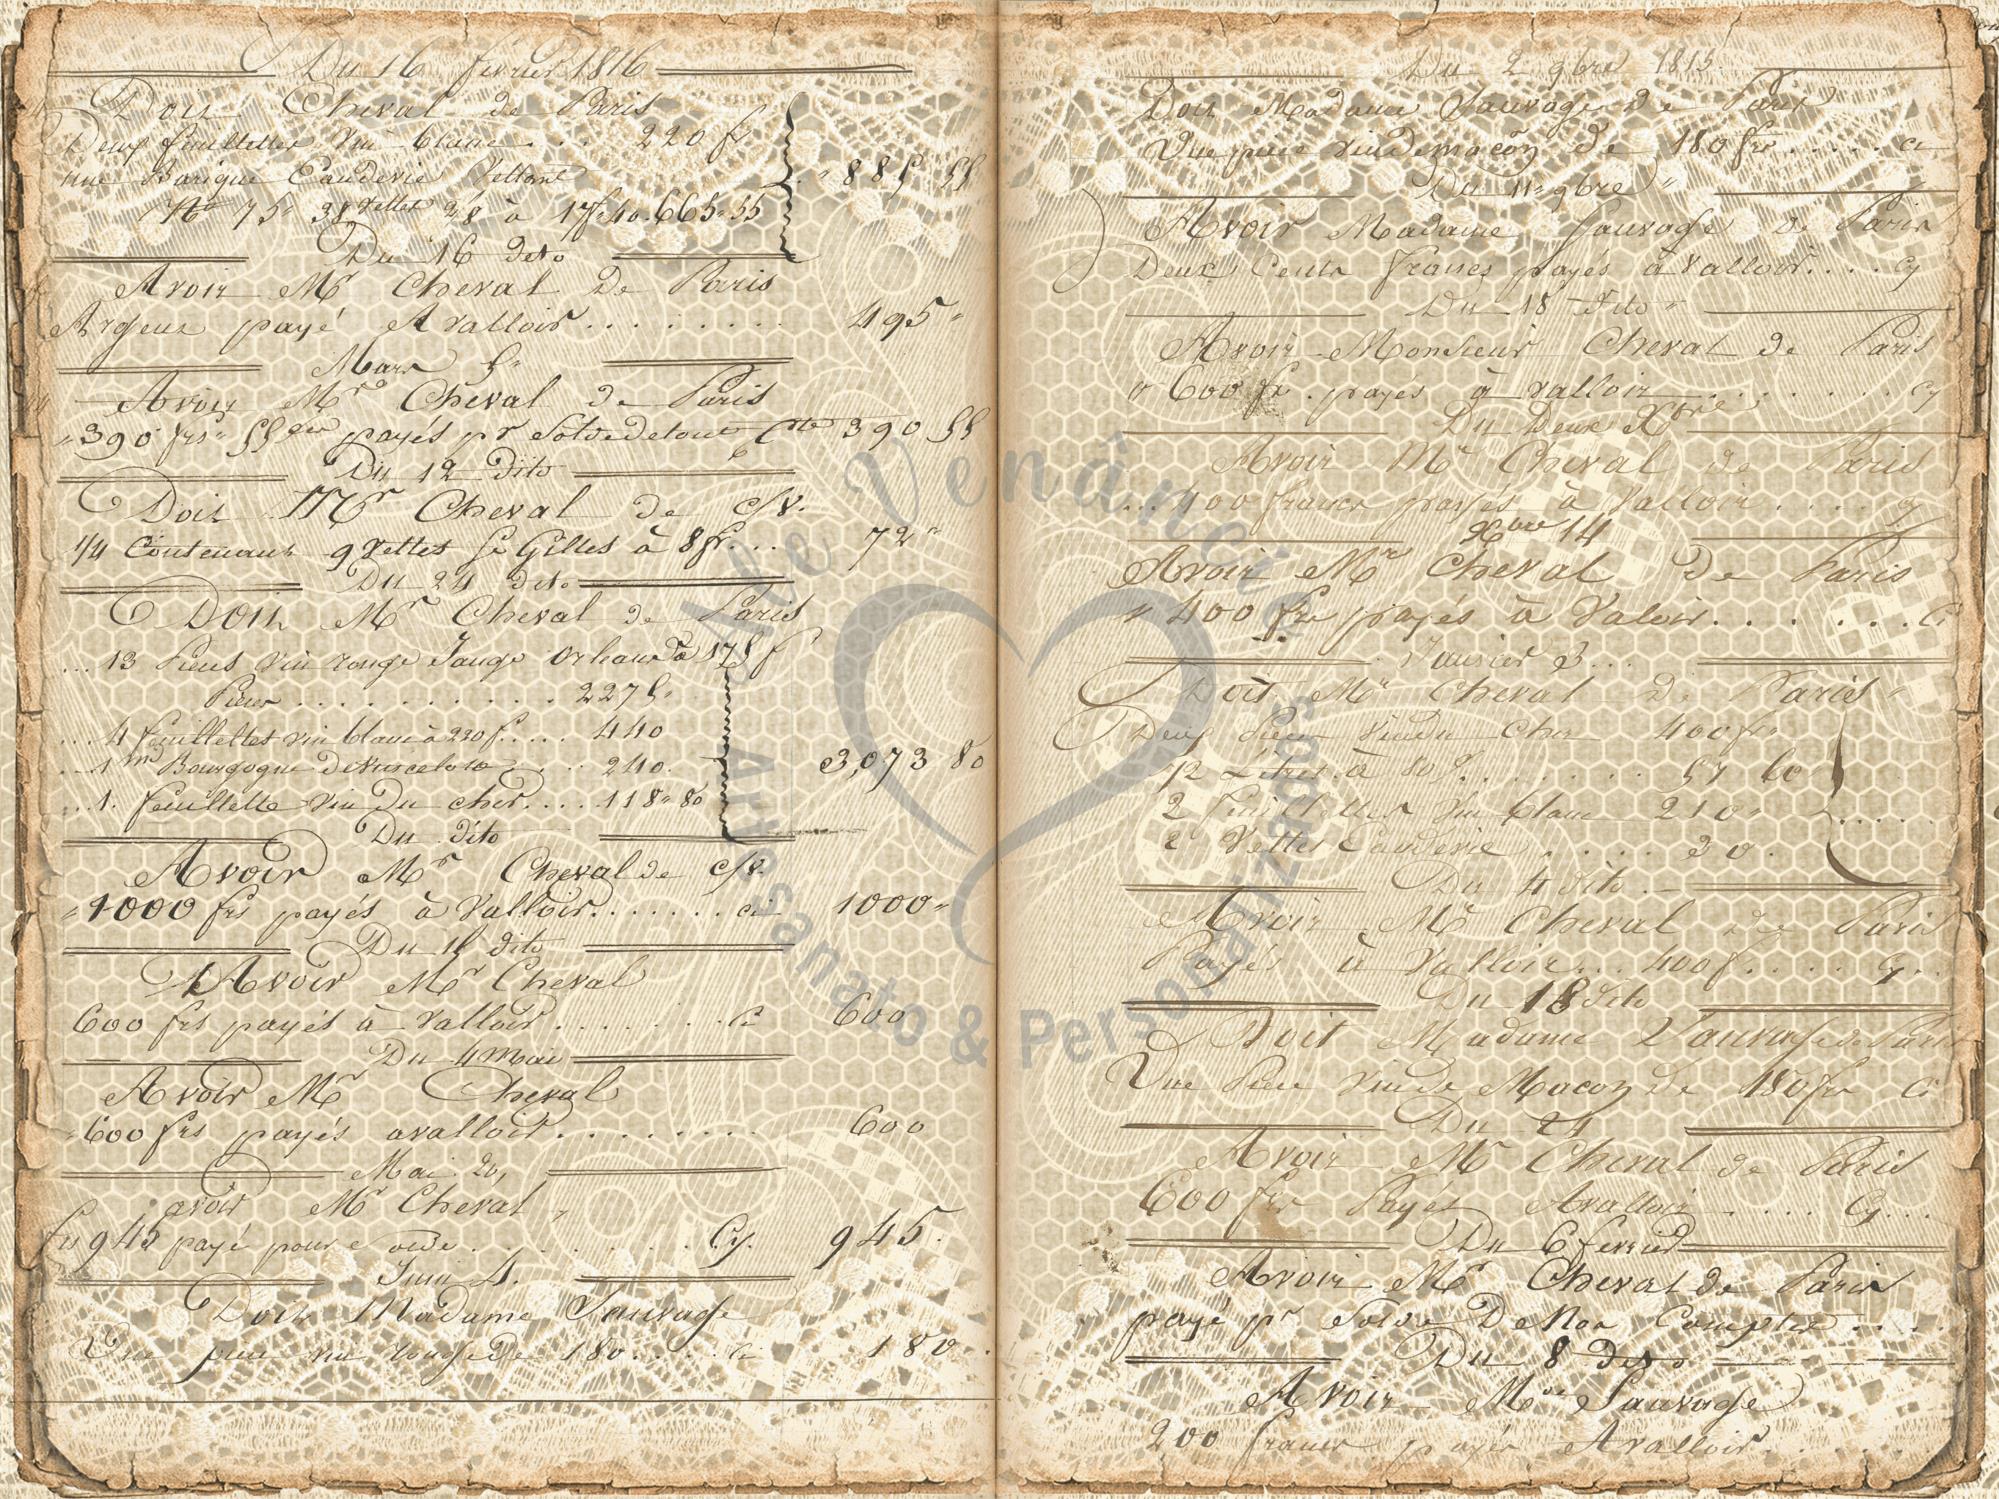 Du 16 février 1816
Doit Cheval de Paris
Deux feuillettes vin blanc . . . 220 f
une Barique Eaudevie Veltant
885 55
No 75 38 Velles 28 à 17f 40. 665. 55
Du 16 dito
Avoir Mr Cheval De Paris
Argent payé Avalloir . . . . . . . . 495 "
Mars 5 "
Avoir Mr Cheval de Paris
" 390 frs " 55 payés pr Solde de tout Cte 390 55
Du 12 dito
Doit Mr Cheval de c/v.
1/4 Contenant 9 Veltes St Gilles à 8 fr . . . 72 "
Du 24 dito
Doit Mr Cheval de Paris
. . . 13 Pieces vin rouge Jauge Orleans à 175 f
Piece . . . . . . . . . . . 2275 "
. . . 4 feuillettes vin blanc à 220 f. . . . . 440
. . . 1 Bourgogne . . . 240.
3,073 80
. . . 1. feuillette vin Du cher. . . . 118 " 80
Du dito
Avoir Mr Cheval de c/v.
" 1000 frs payés à Valloir. . . . . . . ci 1000 "
Du dito
Avoir Mr Cheval
600 frs payés à valloir. . . . . . . . ci 600
Du 4 mai
Avoir Mr Cheval
" 600 frs payés avalloir. . . . . . . . . 600
Mai 20,
avoir Mr Cheval "
fr 945 payé pour solde. . . . . . . . . Cy. 945.
Juin 4.
Doit Madame Sauvage
Une piece vin rouge De 180. . . . . ci 180
Du 2 9bre 1815
Doit Madame Sauvage de Paris
Une piece vin de macon de 180 frs . . . . . ci
Du 11 " 9bre "
Avoir Madame Sauvage de Paris
Deux Cents francs payés à valloir. . . . cy
Du 18 dito "
Avoir Monsieur Cheval de Paris
" 600 fr. payés à valloir . . . . . . . . cy
Du Deux Xbre
Avoir Mr Cheval de Paris
. . . 400 francs payés à Valloir . . . . cy
Xbre 14
Avoir Mr Cheval de Paris
" 400 frs payés à Valoir. . . . . . . Ci
Janvier 3 . . .
Doit Mr Cheval de Paris "
Deux Pieces Vin du Cher 400 fr "
72 Litres à 80 . . . . . . . . 57 60
2 feuillettes vin blanc 210 "
2 Veltes Eaudevie . . . . . 30.
Du 4 dito. -
Avoir Mr Cheval de Paris
Payés à Valloir . . . 400 f. . . . . cy. . .
Du 18 dito
Doit Madame Sauvage de Paris
Une Piece vin de Macon de 180 fr Ci
Du 24
Avoir Mr Cheval de Paris
600 frs Payés Avalloir . . . . Cy . . .
Du 6 fevrier
Avoir Mr Cheval de Paris
payé pr Solde De Nos Comptes . . . .
Du 8 dito
Avoir Mme Sauvage
200 francs payés Avalloir. . . . . .
Ale Venâncio
Artesanato & Personalizados